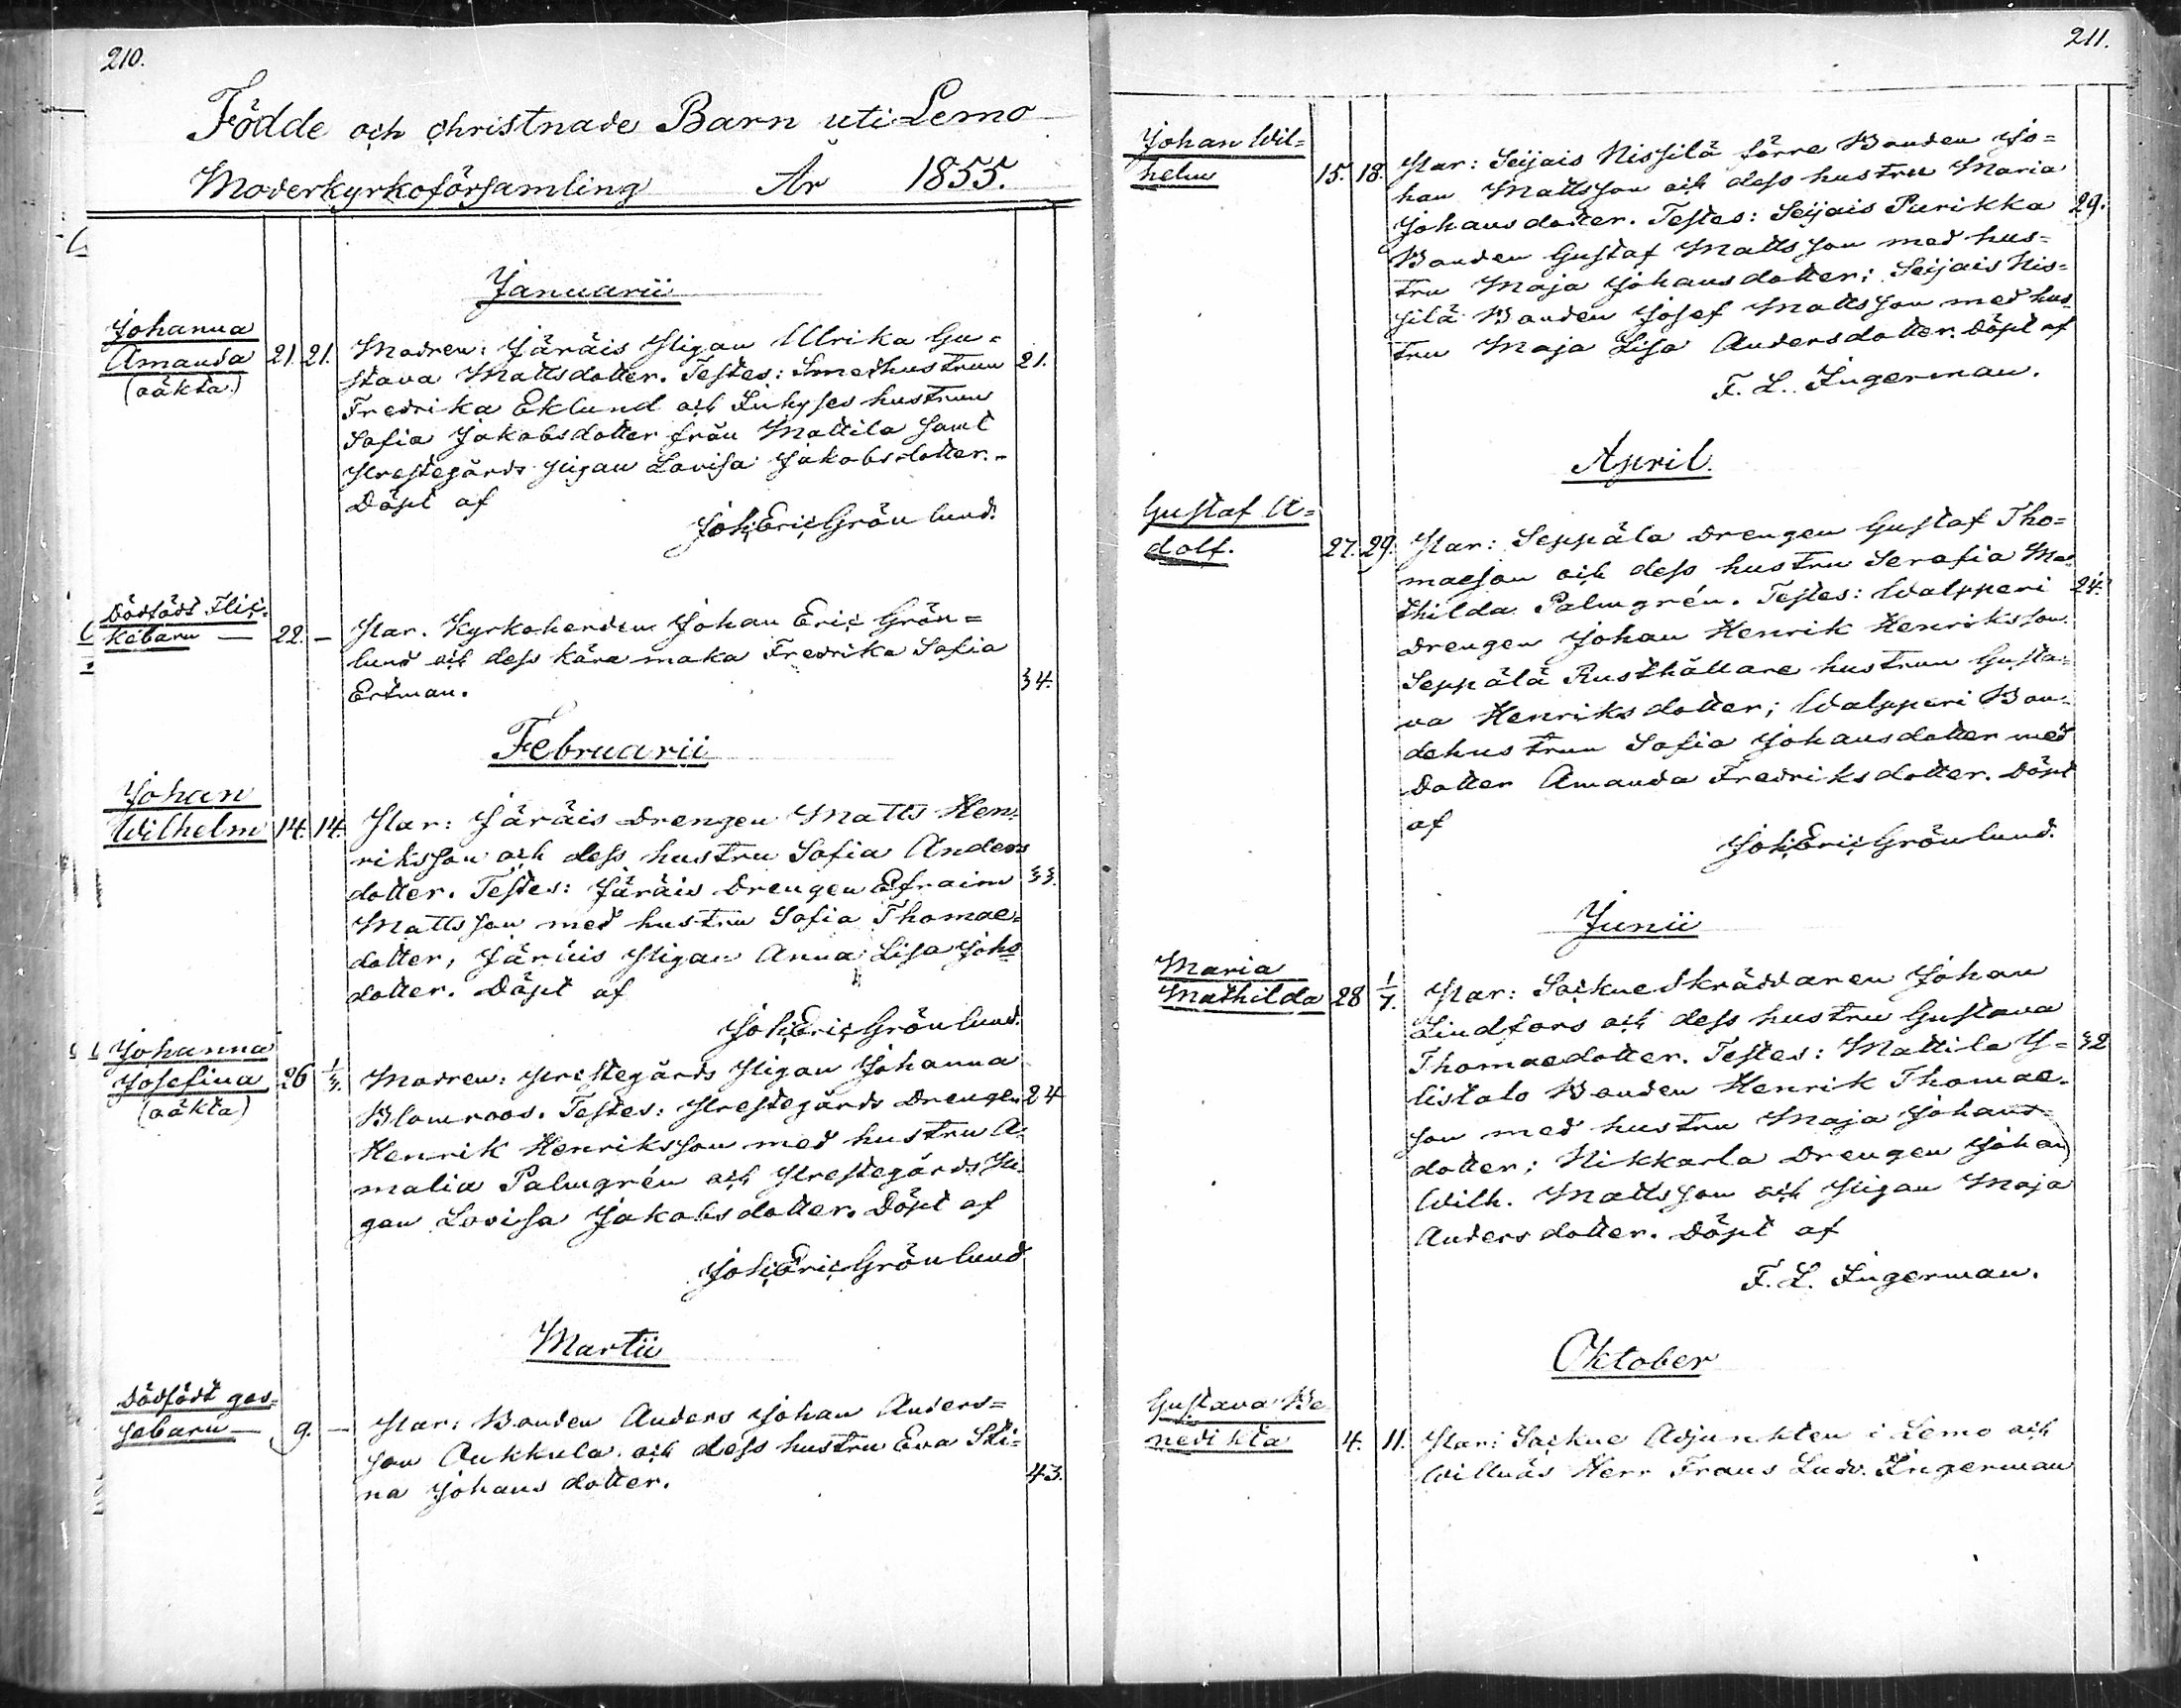 210.
Födde och Christnade Barn uti Lemo
Moderkyrkoförsamling År 1855.
Januarii
Johanna
Amanda 21. 21. Modren: Järäis Pigan Ulrika Gu=
(oäkta.) stava Mattsdotter. Testes: Smedhustrun 21.
Fredrika Eklund och Inhyses hustrun
Sofia Jakobsdotter från Mattila samt
Prestegårds Pigan Lovisa Jakobsdotter.
Döpt af
Joh: Eric Grönlund.
Dödfödt Flic=
kebarn — 22. — Par. Kyrkoherden Johan Eric Grön=
lund och dess kära maka Fredrika Sofia
Ertman. 34.
Februarii
Johan
Wilhelm 14. 14. Par: Järäis Drengen Matts Hen=
riksson och dess hustru Sofia Anders
dotter. Testes: Järäis Drengen Efraim 33.
Mattsson med hustru Sofia Thomae=
dotter, Järäis Pigan Anna Lisa Johs
dotter. Döpt af
Joh: Eric Grönlund.
Johanna
Josefina 26 1/3. Modren: Prestegårds Pigan Johanna
(oäkta) Blomroos. Testes: Prestegårds Drengen 24
Henrik Henriksson med hustru A=
malia Palmgrén och Prestegårds Pi=
gan Lovisa Jakobsdotter. Döpt af
Joh: Eric Grönlund
Martii
Dödfödt gos=
sebarn — 9. — Par: Bonden Anders Johan Anders=
son Aukkula och dess hustru Eva Sti=
na Johansdotter. 43.
211.
Johan Wil=
helm 15. 18. Par: Seijais Nissilä förre Bonden Jo=
han Mattsson och dess hustru Maria
Johansdotter. Testes: Seijais Purikka 29.
Bonden Gustaf Mattsson med hus=
tru Maja Johansdotter; Seijais Nis=
silä Bonden Josef Mattsson med hus
tru Maja Lisa Andersdotter. Döpt af
F. L. Ingerman.
April.
Gustaf A=
dolf. 27. 29. Par: Seppäla Drengen Gustaf Tho=
maeson och dess hustru Serafia Ma=
thilda Palmgrén. Testes: Walpperi 24.
Drengen Johan Henrik Henriksson
Seppälä Rusthållare hustrun Gusta=
va Henriksdotter; Walpperi Bon=
dehustrun Sofia Johansdotter med
Dotter Amanda Fredriksdotter. Döpt
af
Joh: Eric Grönlund.
Junii
Maria
Mathilda 28 1/7. Par: Sockne Skräddaren Johan
Lindfors och dess hustru Gustava
Thomaedotter. Testes: Mattila Y= 32
listalo Bonden Henrik Thomae=
son med hustru Maja Johans=
dotter; Nikkarla Drengen Johan
Wilh. Mattsson och Pigan Maja
Andersdotter. Döpt af
F. L. Ingerman.
Oktober
Gustava Be
nedikta 4. 11. Par: Sockne Adjunkten i Lemo och
Willnäs Herr Frans Ludv. Ingerman